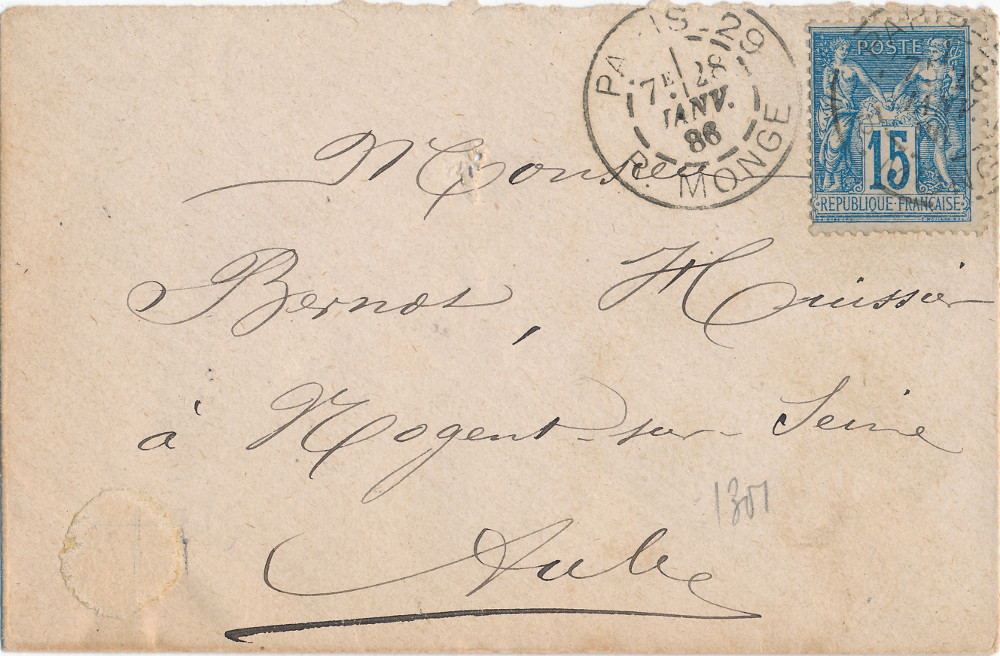 PARIS_29
7E 28
JANV.
86
R. MONGE
POSTE
15
REPUBLIQUE FRANÇAISE
Monsieur
Bernot, Huissier
à Nogent-sur-Seine
1301
Aube